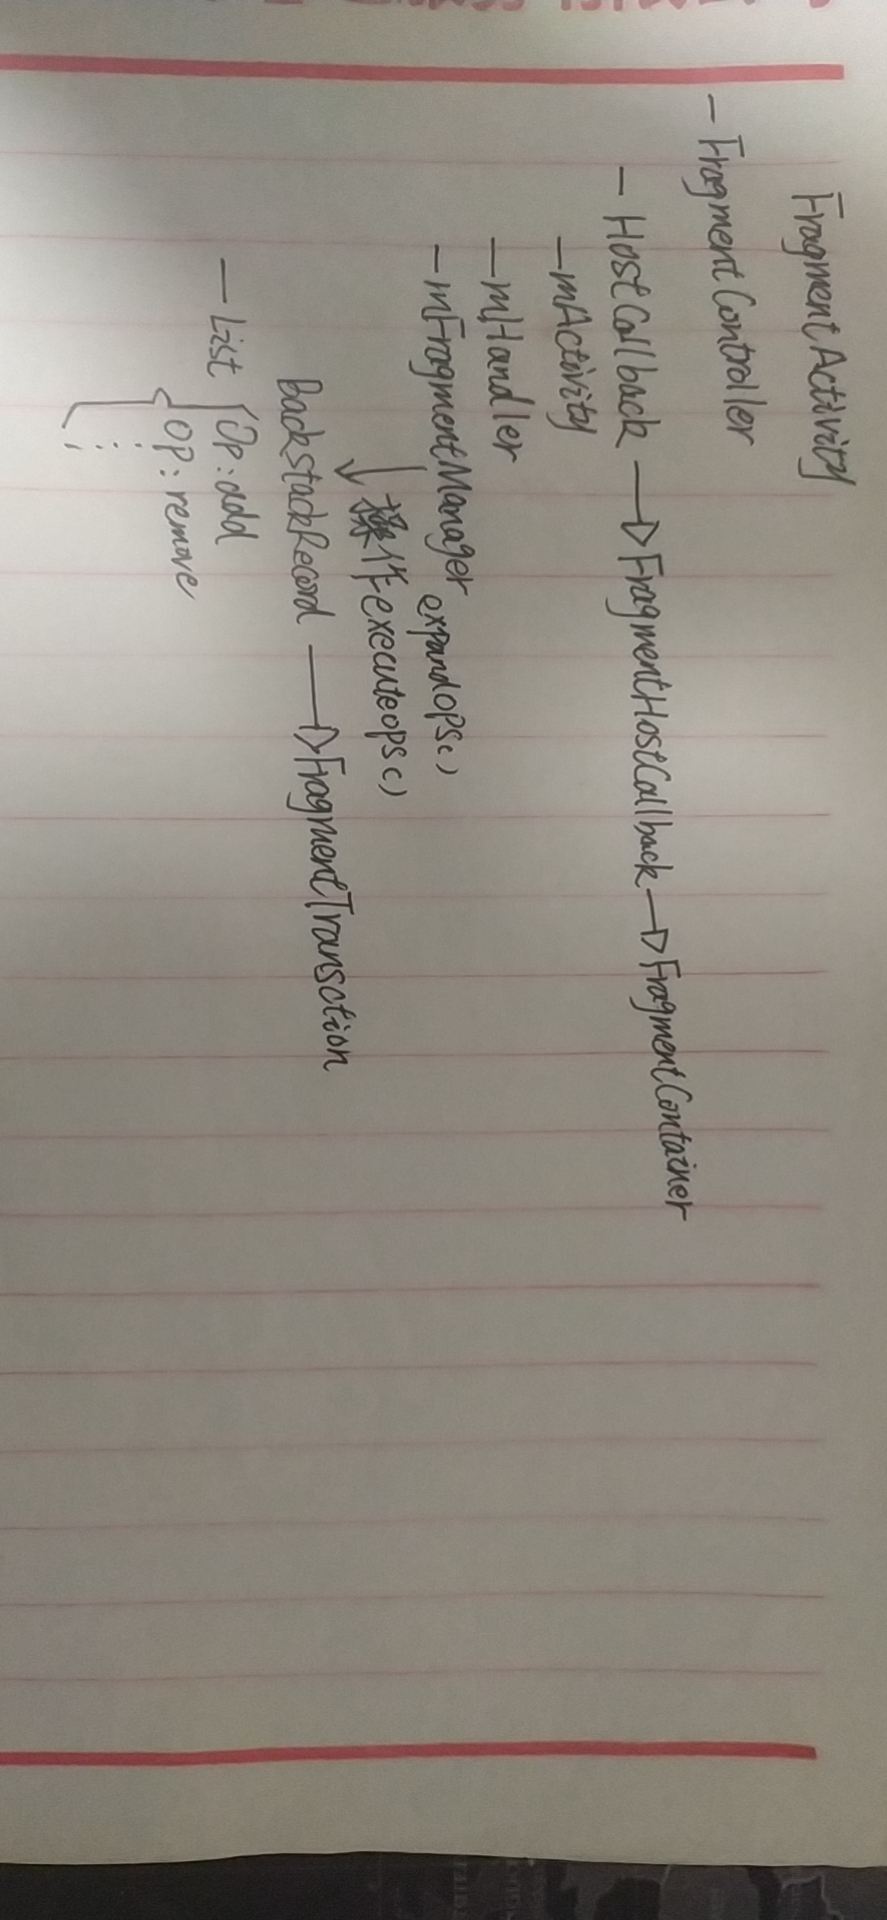 FragmentActivity
- FragmentController
- HostCallback → FragmentHostCallback → FragmentContainer
- mActivity
- mHandler
- mFragmentManager expandops()
↓ 操作executeops()
BackstackRecord → FragmentTransction
- List { Op:add
OP:remove